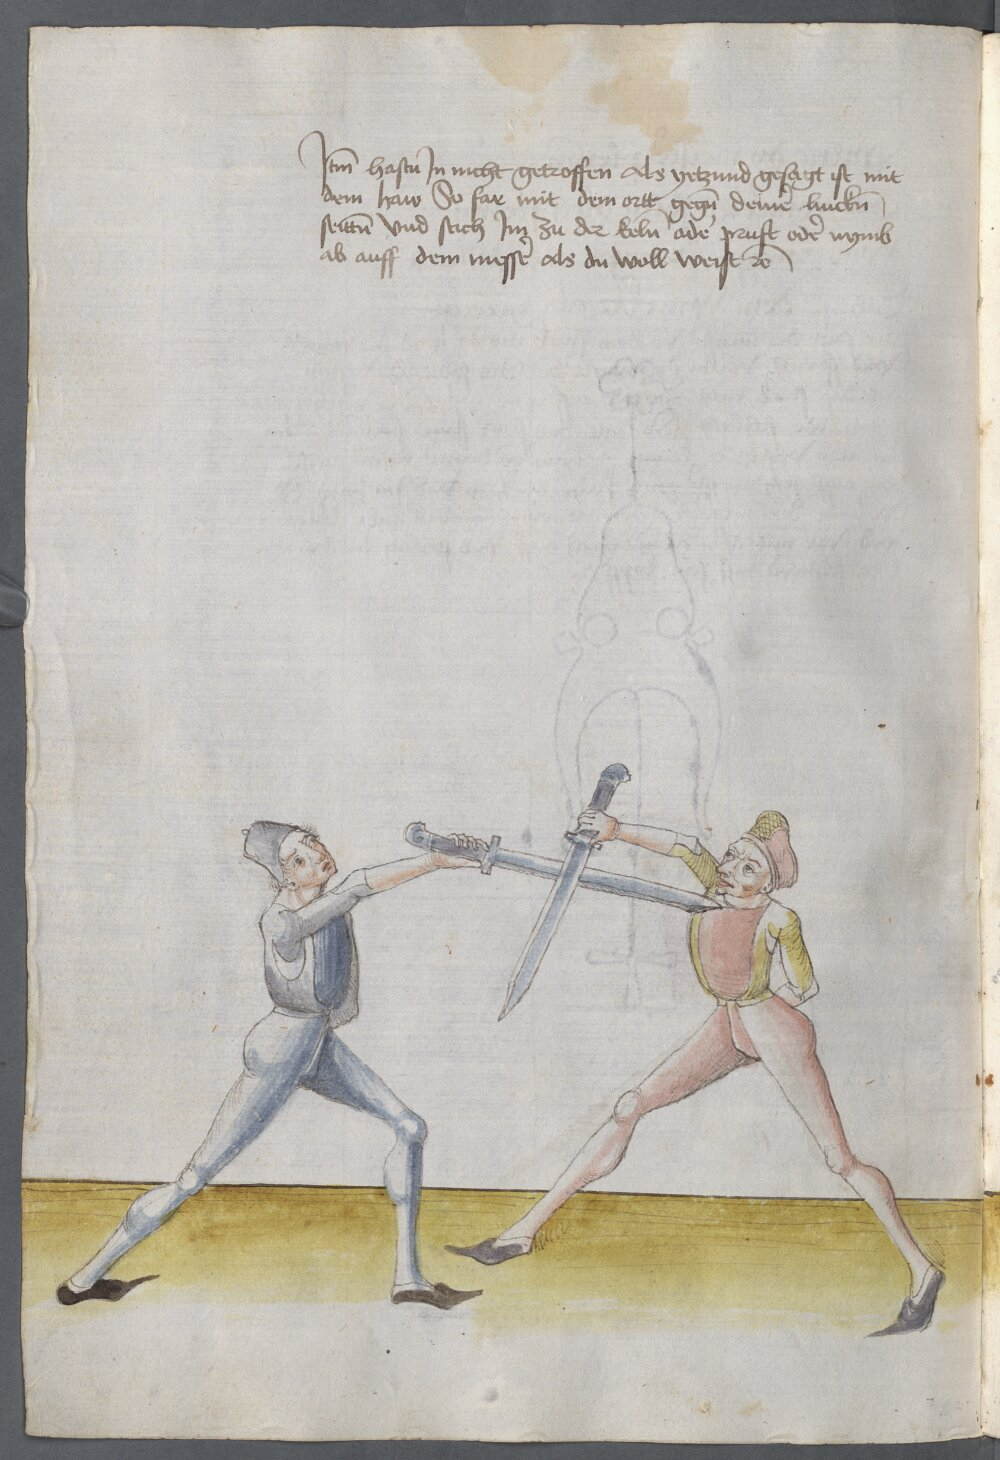 Itm̄ hastu In nicht getroffen als yetzund gesagt ist mit
dem haw So far mit dem ortt gegn̄ deine͂ linckn̄
seittn̄ vnd stich Im zu der keln̄ ade͂ prust ode͂ nymb
ab auff dem messe͂ als du woll weist